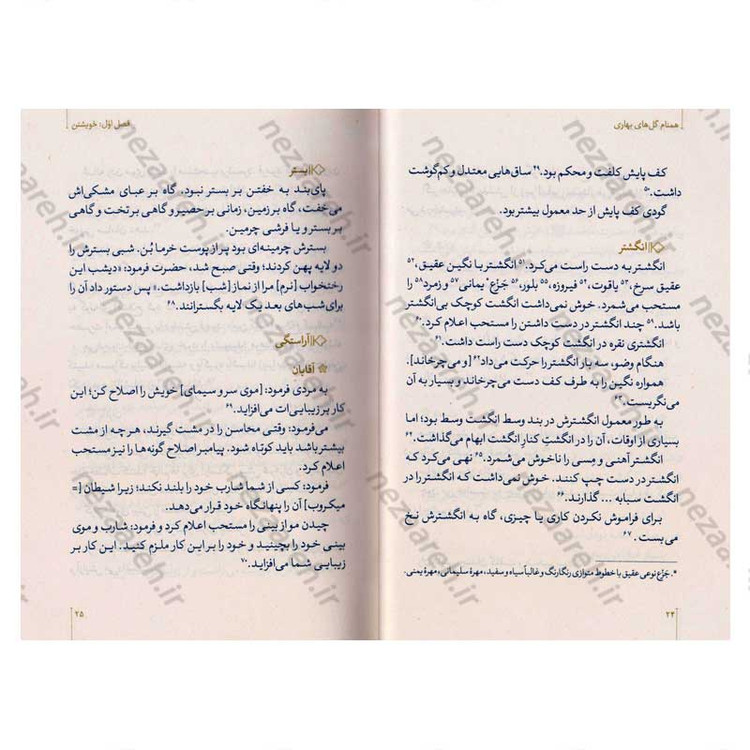 همنام گل‌های بهاری
کف پایش کلفت و محکم بود.۴۹ ساق‌هایی معتدل و کم‌گوشت
داشت.۵۰
گودی کف پایش از حد معمول بیشتر بود.
انگشتر
انگشتر به دست راست می‌کرد.۵۱ انگشتر با نگین عقیق،۵۲
عقیق سرخ،۵۳ یاقوت،۵۴ فیروزه،۵۵ بلور،۵۶ جَزْع* یمانی۵۷ و زمرد۵۸ را
مستحب می‌شمرد. خوش نمی‌داشت انگشت کوچک بی‌انگشتر
باشد.۵۹ چند انگشتر در دست داشتن را مستحب اعلام کرد.۶۰
انگشتری نقره در انگشت کوچک دست راست داشت.۶۱
هنگام وضو، سه بار انگشتر را حرکت می‌داد۶۲ [و می‌چرخاند].
همواره نگین را به طرف کف دست می‌چرخاند و بسیار به آن
می‌نگریست.۶۳
به طور معمول انگشترش در بند وسط انگشت بود؛ اما
بسیاری از اوقات، آن را در انگشتِ کنارِ انگشت ابهام می‌گذاشت.۶۴
انگشتر آهنی و مِسی را ناخوش می‌شمرد.۶۵ نهی می‌کرد که
انگشتر در دست چپ کنند. خوش نمی‌داشت که انگشتر را در
انگشت سبابه ... گذارند.۶۶
برای فراموش نکردن کاری یا چیزی، گاه به انگشترش نخ
می‌بست.۶۷
*. جَزْع نوعی عقیق با خطوط متوازی رنگارنگ و غالباً سیاه و سفید، مهرهٔ سلیمانی، مهرهٔ یمنی.
۲۴
فصل اوّل: خویشتن
بستر
پای‌بند به خفتن بر بستر نبود. گاه بر عبای مشکی‌اش
می‌خفت، گاه بر زمین، زمانی بر حصیر و گاهی بر تخت و گاهی
بر بستر و یا فرشی چرمین.
بسترش چرمینه‌ای بود پر از پوست خرما بُن. شبی بسترش را
دو لایه پهن کردند؛ وقتی صبح شد، حضرت فرمود: «دیشب این
رختخواب [نرم] مرا از نماز [شب] بازداشت.» پس دستور داد آن را
برای شب‌های بعد یک لایه بگسترانند.۶۸
آراستگی
آقایان
به مردی فرمود: [موی سر و سیمای] خویش را اصلاح کن؛ این
کار بر زیبایی‌ات می‌افزاید.۶۹
می‌فرمود: وقتی محاسن را در مشت گیرند، هر چه از مشت
بیشتر باشد باید کوتاه شود. پیامبر اصلاح گونه‌ها را نیز مستحب
اعلام کرد.
فرمود: کسی از شما شارب خود را بلند نکند؛ زیرا شیطان [=
میکروب] آن را پنهانگاه خود قرار می‌دهد.
چیدن مو از بینی را مستحب اعلام کرد و فرمود: شارب و موی
بینی خود را بچینید و خود را بر این کار ملزم کنید. این کار بر
زیبایی شما می‌افزاید.۷۰
۲۵
nezaareh.ir